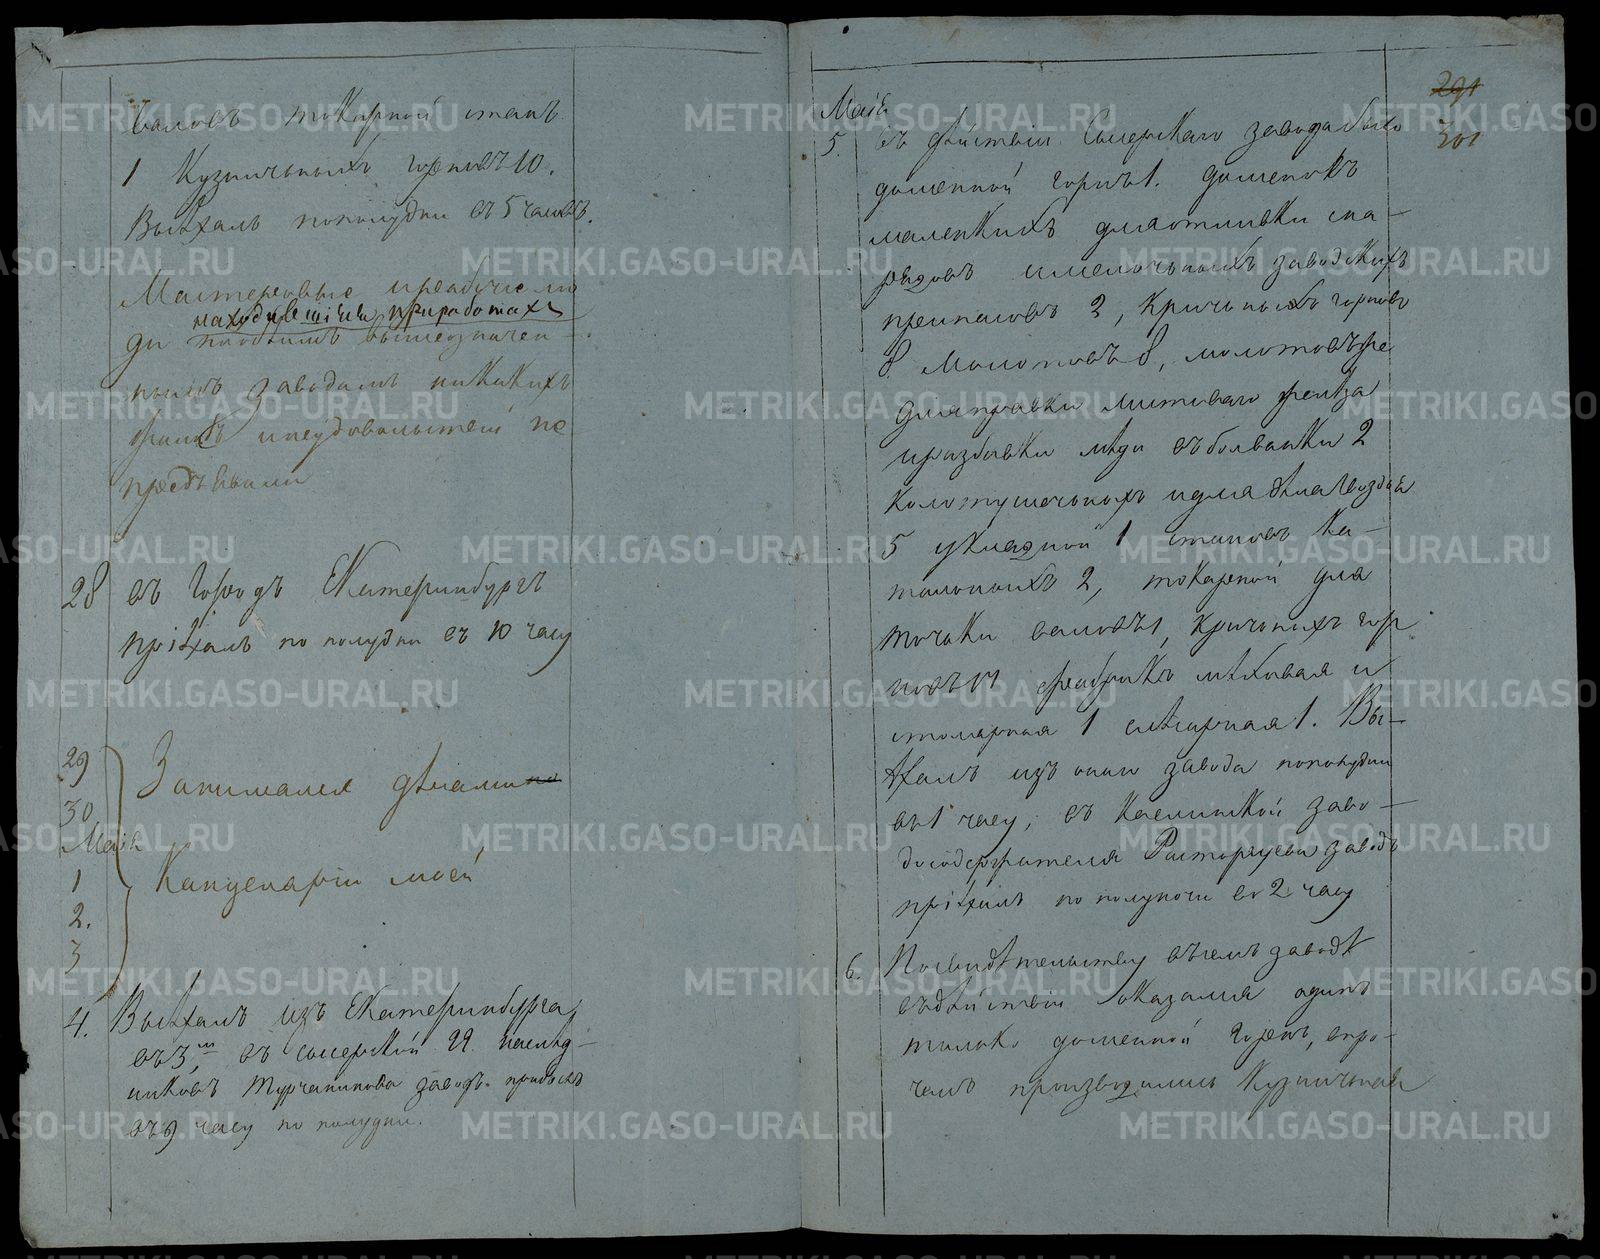 валовъ токарной станъ
1 Кузничныхъ горновъ 10.
Выѣхалъ пополудни въ 5 часовъ.
Мастеровые и рабучіе лю
находившіися приработахъ
ди поовѣимъ вышеозначен-
нымъ заводамъ никакихъ
жалобъ инеудовольствей не
предъявили
28 въ Городъ Екатеринбургъ
пріѣхалъ по полудни въ 10 часу
29
30
Маія
1
2.
3
Занимался дѣлами по
Канцеляріи моей
4. Выѣхалъ изъ Екатеринбурга
въ 3, въ Сысерской ГГ. наслѣд-
никовъ Турчанинова заводъ. прибылъ
въ 9 часу по полудни.
291
301
Маія
5. въ дѣйствіи Сысерскаго завода было
доменной горнъ 1. доменокъ
маленкихъ дляотливки сна-
рядовъ имелочныхъ заводскихъ
припасовъ 2, Кричныхъ горновъ
8. Молотовъ 8, молотовъже
дляправки листоваго желѣза
иразбивки мѣди въболванки 2
Колотушечныхъ идля дѣла Гвоздей
5 укладной 1 становъ Ка-
тальныхъ 2, токарной для
точьки валовъ 1, Кричныхъ гор
новъ 11 фабрикъ мѣховая и
столярная 1 слѣсарная 1. Вы-
ѣхалъ изъ онаго завода пополудни
въ 1 часу, въ Каслинской заво-
досодержателя Расторгуева заводъ
пріѣхалъ по полуночи въ 2 часу
6. Посвидѣтельству въсемъ заводѣ
въдѣйствіи оказался одинъ
только доменной Горнъ, впро-
чемъ производились Кузничныя
METRIKI.GASO-URAL.RU